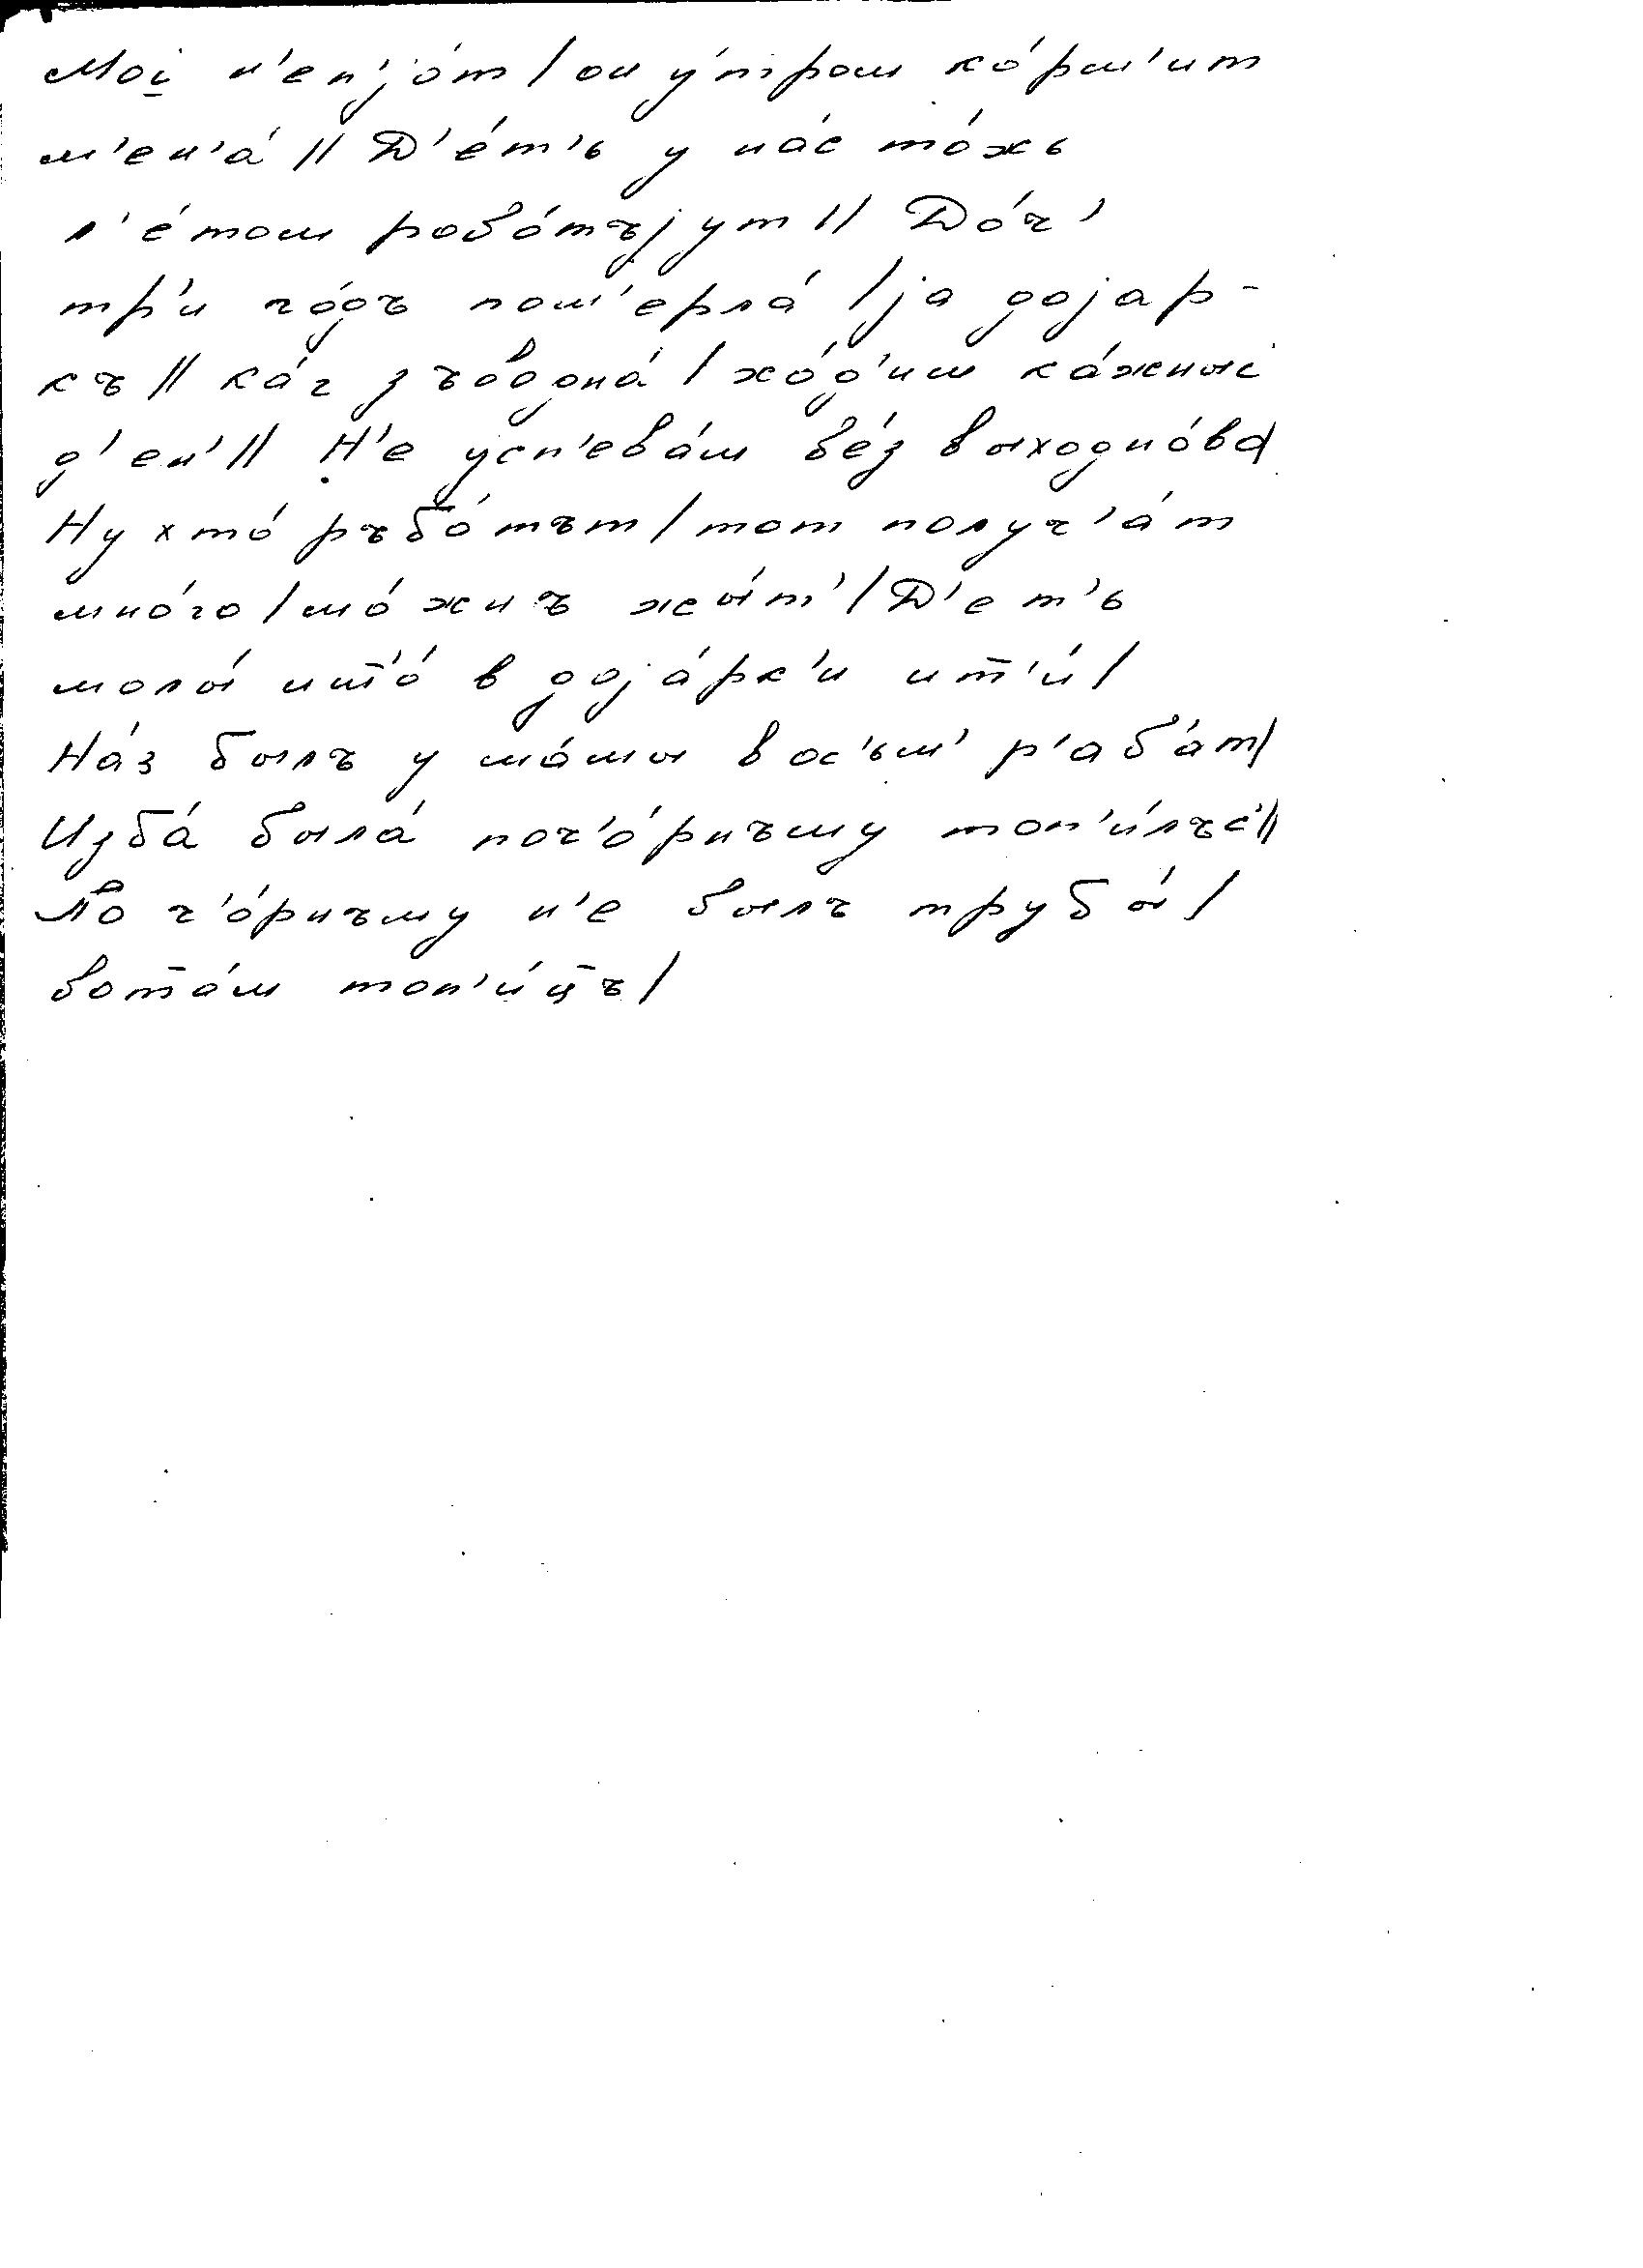 Моi̯ н'еп'jо́т / он у́тром ко́рм'ит
м'ен'а́ // Д'е́т'ь у на́с то́жь
л'е́том робо́тъjут // До́ч'
тр'и го́дъ пом'ерла́ / jа доjар-
къ // ка́г з ъво́дна́ / хо́д'им ка́жныi
д'ен' // Н'е усп'ева́м бе́з выходно́ва
Ну хто́ ръбо́тът / тот получ'а́т
мно́го / мо́жнъ жы́т' / Д'ет'ь
молы́ ишто́ в доjа́рк'и ит̄'и́ /
На́з былъ у ма́мы вос'ьм' р'аб'а́т /
Изба́ была́ поч'о́рнъму топ'и́лъс' //
По ч'о́рнъму н'е былъ трубы́ /
вот̄а́м топ'и́ц̄ъ /